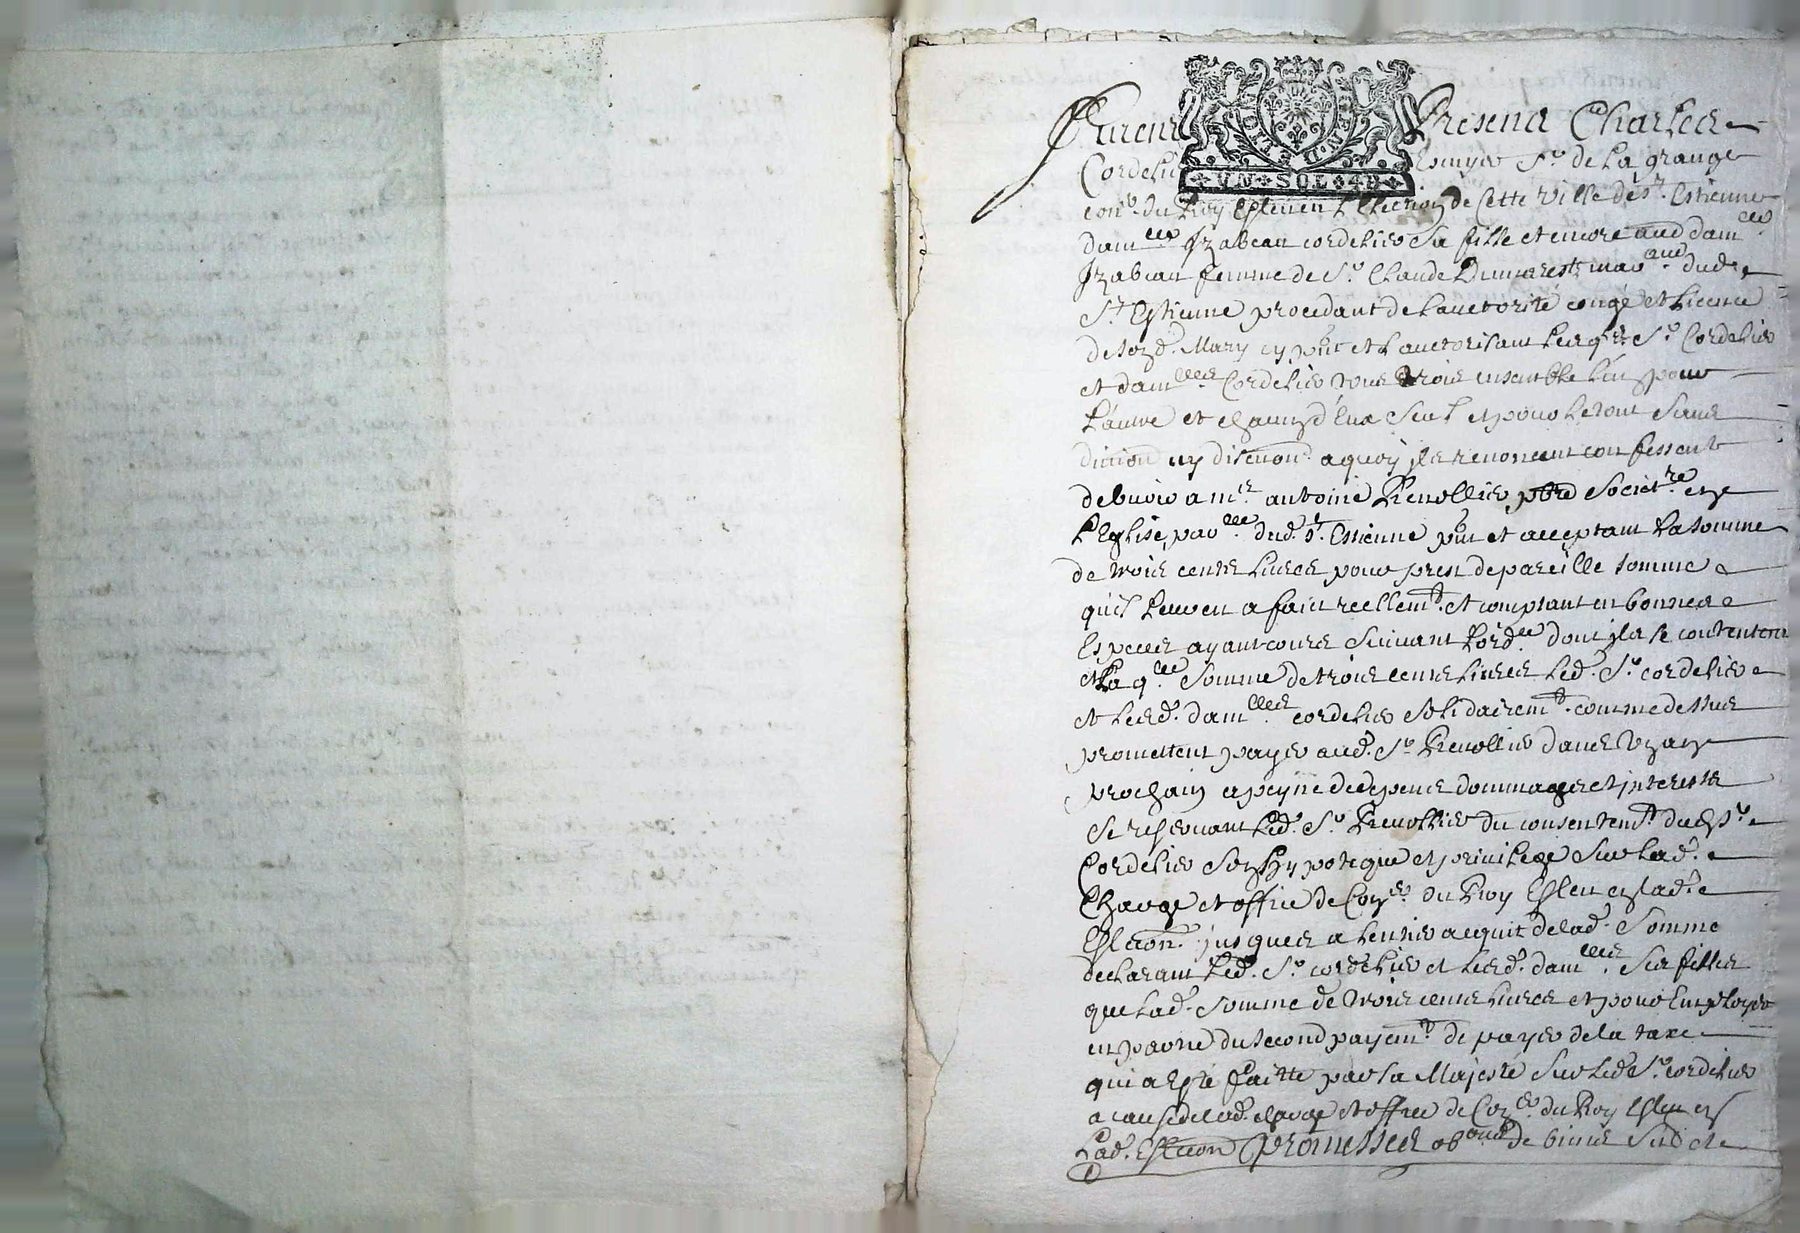 Furent Present Charles
Cordelier Escuyer Sr de la grange
conr. du Roy Esleu en L'Election de Cette ville de St. Estienne
damlle Izabeau cordelier Sa fille et encore aud damlle
Izabeau femme de Sr Claude Dumarest marchand dud
St Estienne procedant de L'auctorité congé et licence
de sond. Mary cy pnt et L'auctorisant Lesqls Sr Cordelier
et damlles Cordelier tous trois ensemble L'un pour
L'autre et chacun d'Eux Seul et pour le tout Sans
division ny discution a quoy ils renoncent confessent
debvoir a mre antoine Prenollier pbre Societre en
L'Eglise parlle dud. St. Estienne pnt et acceptant La somme
de trois cents Livres pour prest de pareille somme
qu'il Leur en a fait reellemt. et comptant en bonnes
Especes ayant cours Suivant L'ord. dont ils se contentent
et Laqlle Somme de trois cents Livres Led. Sr cordelier
et Lesd. damlles cordelier Solidairemt. comme dessus
promettent payer aud. Sr Prenollier dans Un an
prochain a peyne de depens dommages et interests
Se reservant Led. Sr Prenollier du consentemt. dud Sr
Cordelier Son hypoteque et privilege Sur Lad.
Charge et office de Conser. du Roy Esleu en Lad.
Eslection. jusques a L'entier acquit de lad. Somme
declarant Led. Sr cordelier et Lesd. damlles. Ses filles
que Lad. Somme de trois cents Livres est pour Employer
en partie du second payemt de payer de la taxe
qui a Esté faitte par Sa Majesté Sur Led Sr. cordelier
a cause de lad. charge et office de Conser du Roy Esleu en
Lad. Eslection Promesses obons de biens Sud et
DIEU SOL 4D
UN SOL 4D